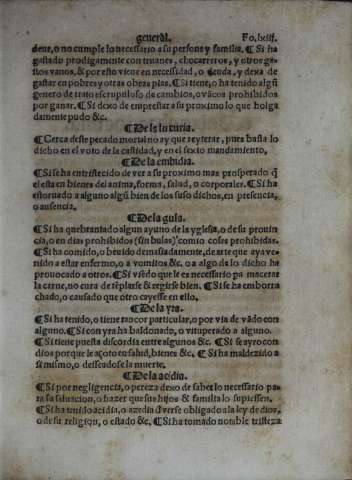 general. Fo.lxiij.
dene, o no cumple lo necessario a su persona y familia. ¶ Si ha
gastado prodigamente con truanes, chocarreros, y otros gas-
tos vanos, & por esto viene en necessidad, o deuda, y dexa de
gastar en pobres y otras obras pias. ¶ Si tiene, o ha tenido algũ
genero de trato escrupuloso de cambios, o vsos prohibidos
por ganar. ¶ Si dexo de emprestar a su proximo lo que holga
damente pudo &c.
¶ De la luxuria.
¶ Cerca deste pecado mortal no ay que reyterar, pues basta lo
dicho en el voto de la castidad, y en el sexto mandamiento,
¶ De la embidia.
¶ Si se ha entristecido de ver a su proximo mas prosperado q̃
el esta en bienes del anima, fama, salud, o corporales. ¶ Si ha
estoruado a alguno algũ bien de los suso dichos, en presencia,
o ausencia.
¶ De la gula.
¶ Si ha quebrantado algun ayuno de la yglesia, o de su prouin
cia, o en dias prohibidos (sin bulas) comio cosas prohibidas.
¶ Si ha comido, o beuido demasiadamente, de arte que aya ve-
nido a estar enfermo, o a vomitos &c. o a algo de lo dicho ha
prouocado a otros. ¶ Si vsẽdo que le es necessario pa macerar
la carne, no cura de tẽplarse & regirse bien. ¶ Si se ha emborra
chado, o causado que otro cayesse en ello.
¶ De la yra.
¶ Si ha tenido, o tiene rancor particular, o por via de vãdo con
alguno. ¶ Si con yra ha baldonado, o vituperado a alguno.
¶ Si tiene puesta discordia entre algunos &c. ¶ Si se ayro con
dios porque le açoto en salud, bienes &c. ¶ Si ha maldezido a
si mismo, o desseadose la muerte.
¶ De la acidia.
¶ Si por negligencia, o pereza dexo de saber lo necessario pa-
ra su saluacion, o hazer que sus hijos & familia lo supiessen.
¶ Si ha tenido acidia, o azedia d̃ verse obligado a la ley de dios,
o de su religion, o estado &c. ¶ Si ha tomado notable tristeza